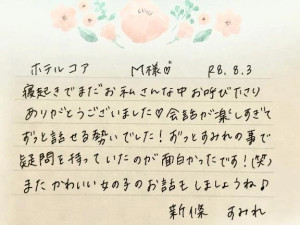 ホテルコア M様♡ R8.8.3
寝起きでまだお私さんな中お呼びたさり
ありがとうございました♡会話が楽しすぎて
ずっと話せる勢いでした！ずっとすみれの事で
疑問を持っていたのが面白かったです！(笑)
またかわいい女の子のお話もしましょうね♪
新條 すみれ